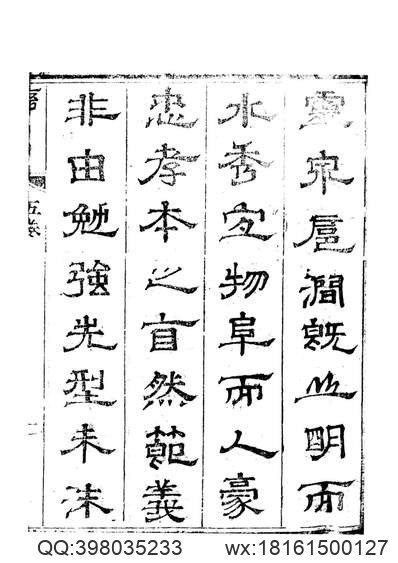 靈泉扈澗既山明而
水秀宜物阜而人豪
忠孝本之自然節義
非由勉強先型未沫
五卷
QQ:398035233 wx:18161500127